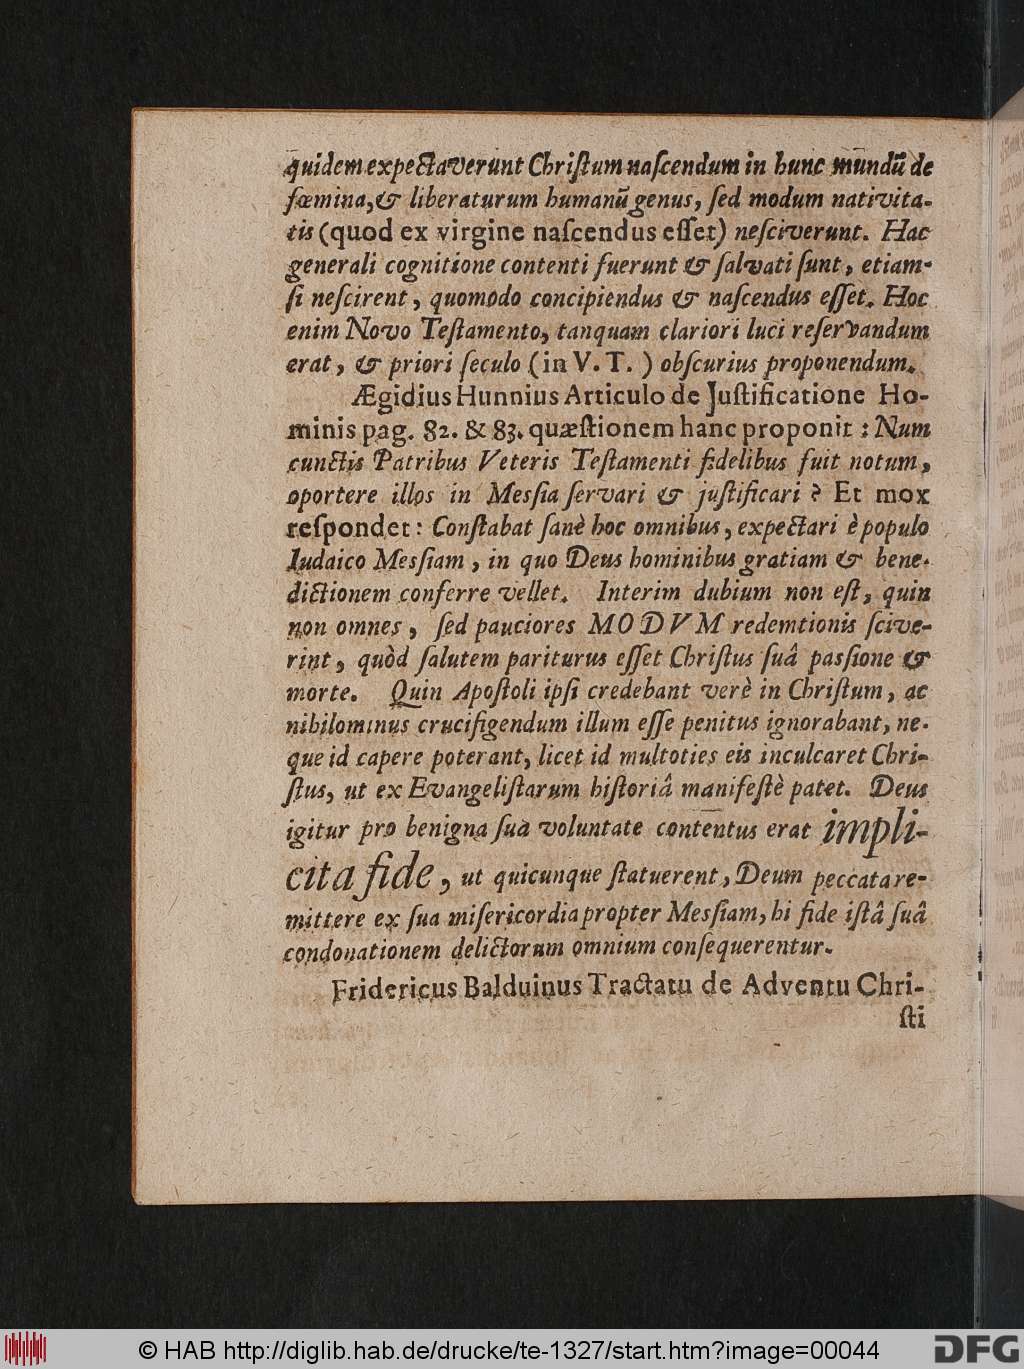 quidem expectaverunt Chriſtum naſcendum in hunc mundũ de
fœmina, & liberaturum humanũ genus, ſed modum nativita-
tis (quod ex virgine naſcendus eſſet) neſciverunt. Hac
generali cognitione contenti fuerunt & ſalvati ſunt, etiam-
ſi neſcirent, quomodo concipiendus & naſcendus eſſet. Hoc
enim Novo Teſtamento, tanquam clariori luci reſervandum
erat, & priori ſeculo (in V. T. ) obſcurius proponendum.
Ægidius Hunnius Articulo de Juſtificatione Ho-
minis pag. 82. & 83. quæſtionem hanc proponit : Num
cunctis Patribus Veteris Teſtamenti fidelibus fuit notum,
oportere illos in Mesſia ſervari & juſtificari ? Et mox
reſpondet: Conſtabat ſanè hoc omnibus, expectari è populo
Iudaico Mesſiam, in quo Deus hominibus gratiam & bene-
dictionem conferre vellet. Interim dubium non eſt, quin
non omnes, ſed pauciores MODVM redemtionis ſcive-
rint, quòd ſalutem pariturus eſſet Chriſtus ſuâ pasſione &
morte. Quin Apoſtoli ipſi credebant verè in Chriſtum, ac
nihilominus crucifigendum illum eſſe penitus ignorabant, ne-
que id capere poterant, licet id multoties eis inculcaret Chri-
ſtus, ut ex Evangeliſtarum hiſtoriâ manifeſtè patet. Deus
igitur pro benigna ſua voluntate contentus erat impli-
cita fide, ut quicunque ſtatuerent, Deum peccata re-
mittere ex ſua miſericordia propter Mesſiam, hi fide iſtâ ſuâ
condonationem delictorum omnium conſequerentur.
Fridericus Balduinus Tractatu de Adventu Chri-
ſti
© HAB http://diglib.hab.de/drucke/te-1327/start.htm?image=00044
DFG